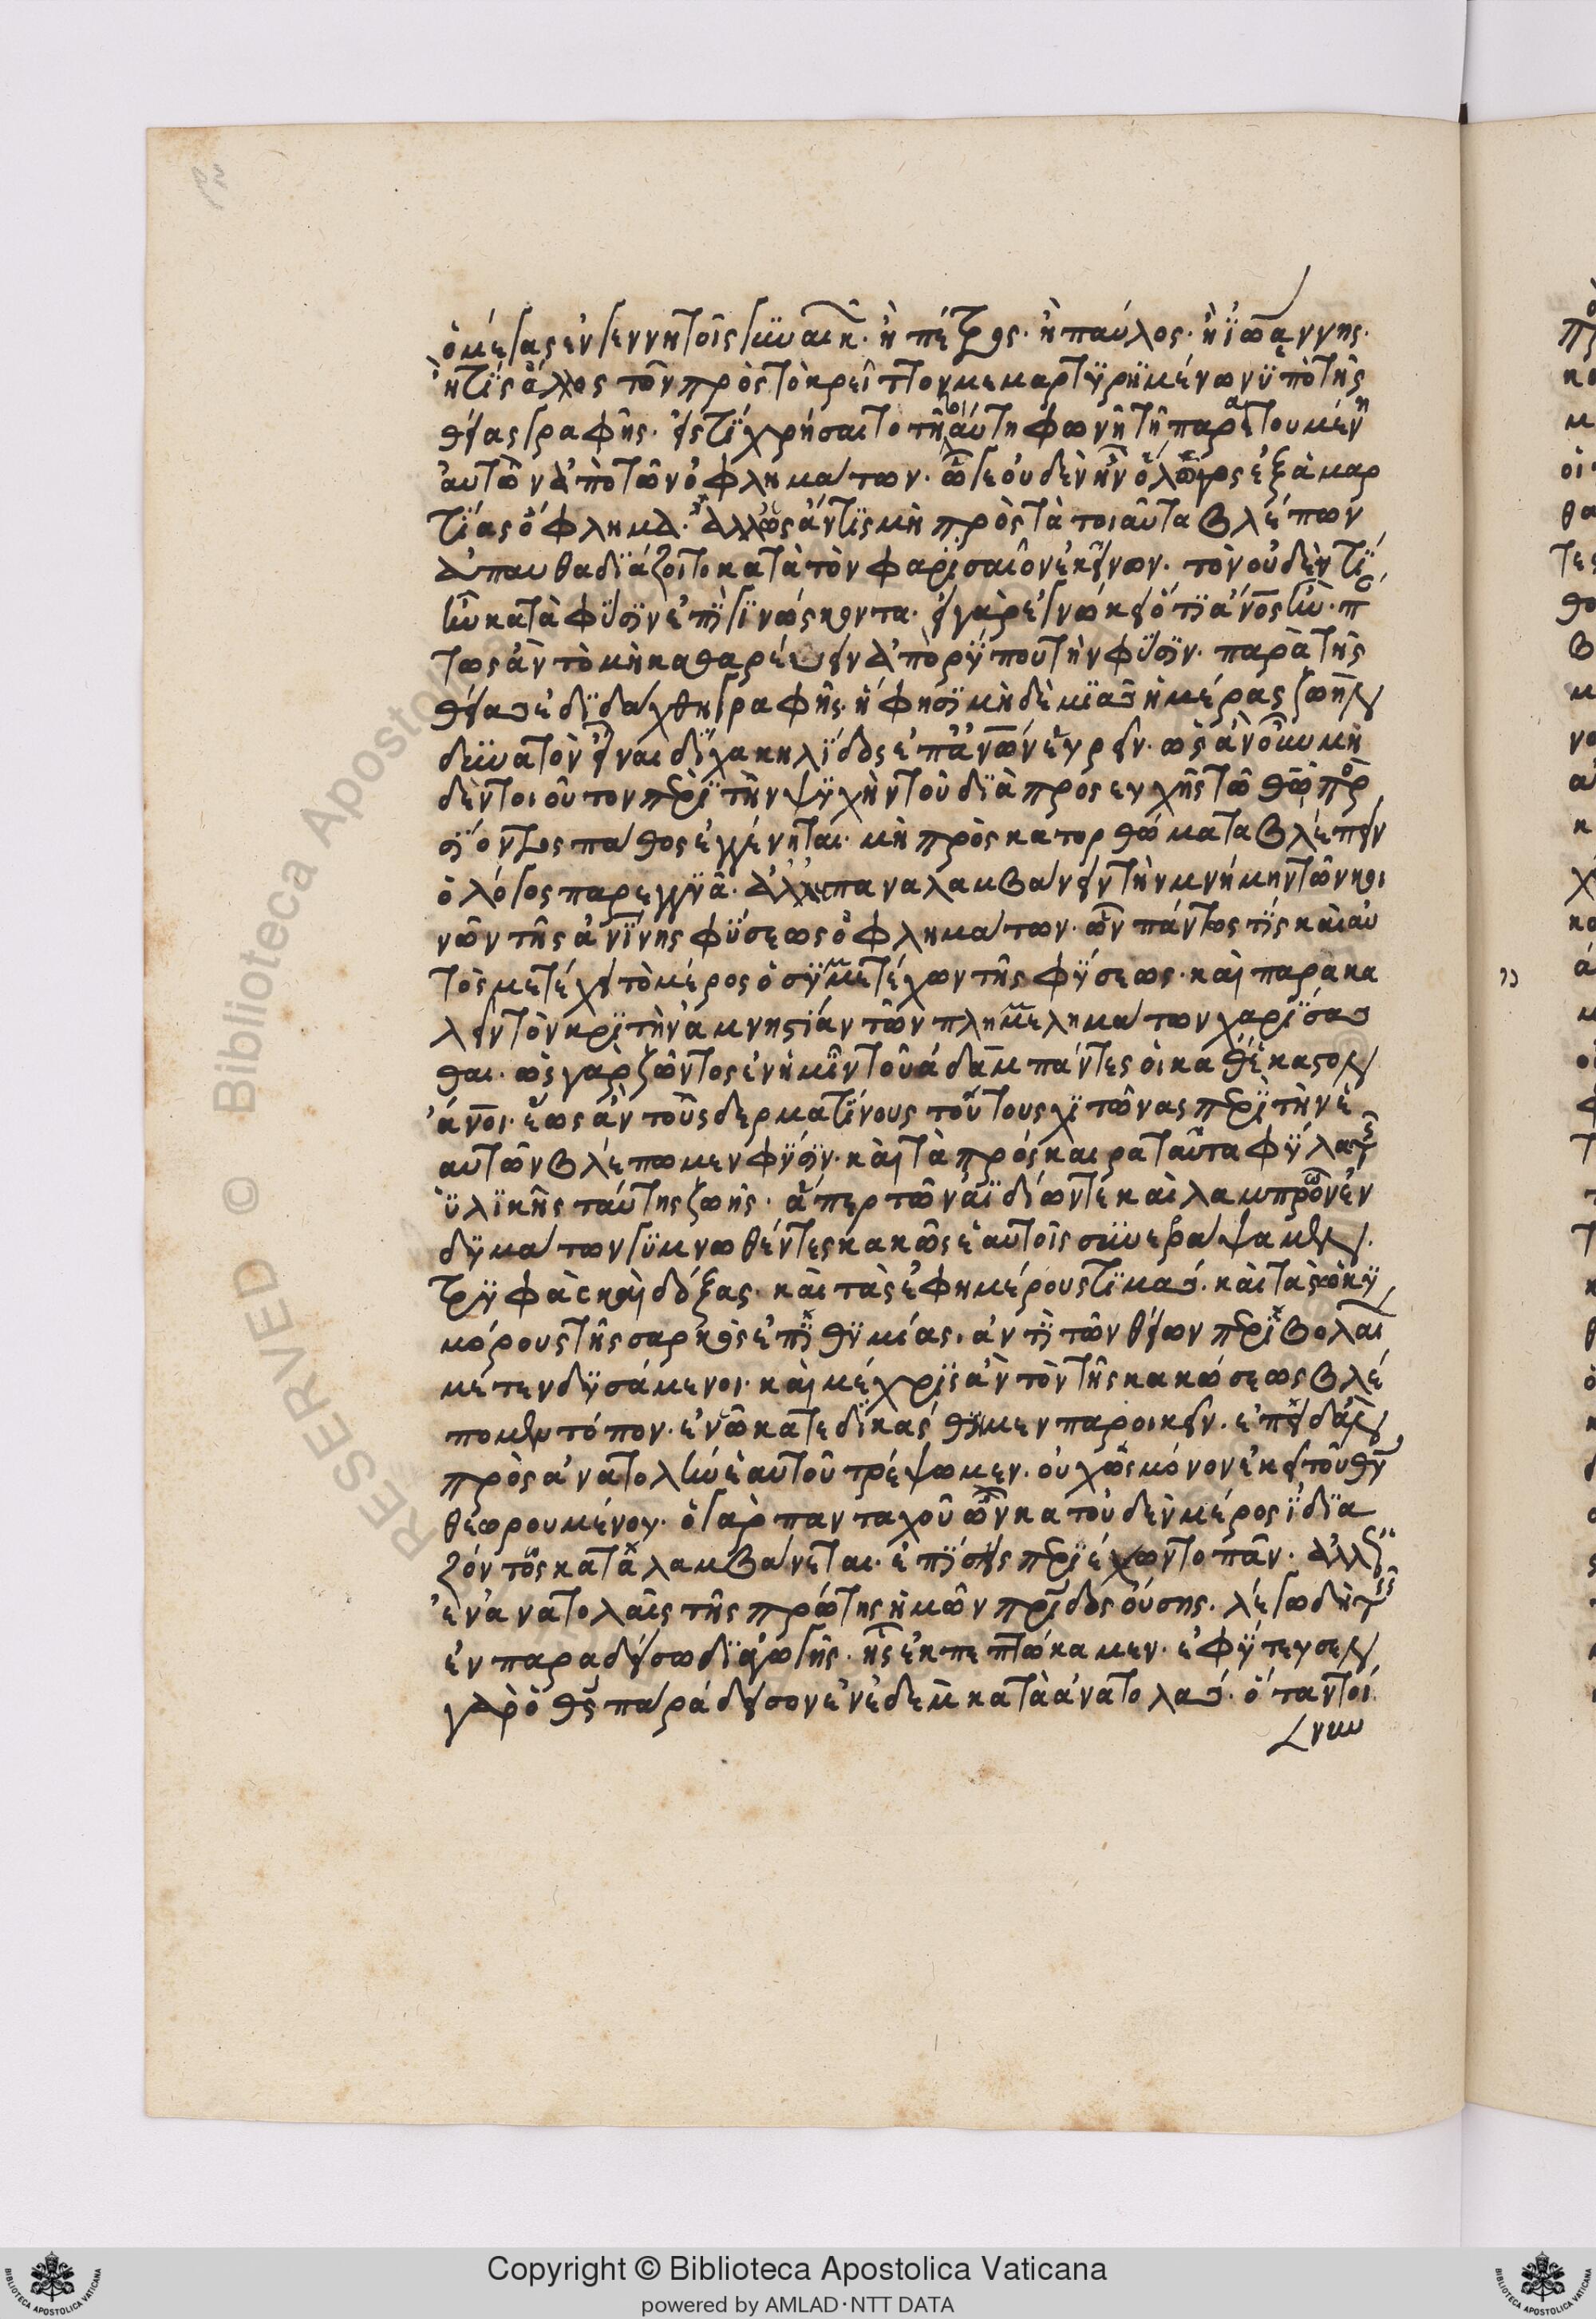 ὁ μέγας ἐν γεννητοῖς γυναικ. ἢ πέτρος. ἢ παύλος. ἢ ϊωάννης.
ἤ τϊς ἄλλος τῶν πρὸς τὸ κρεῖττον μεμαρτϋρημένων ϋπὸ τῆς
θείας γραφῆς. εἰς τί χρήσαιτο τῆ τοιαύτη φωνῆ τῆ παραιτουμένη
αὐτῶν ἀπὸ τῶν ὀφλημάτων. ᾧ γε οὐδὲν ἦν ὅλως ἐξ ἁμαρ
τϊας ὄφλημα. ἀλλ' ὡς ἄν τϊς μὴ πρὸς τὰ τοιαῦτα βλέπων
ἀπαυθαδϊάζοιτο κατὰ τὸν φαρισαῖον ἐκεῖνον. τὸν οὐδὲν τί
ἦν κατὰ φύσϊν ἐπϊγϊνώσκοντα. εἰ γὰρ ἐγνώκει ὅτϊ ἄνος ἦν. π
τως ἂν τὸ μὴ καθαρεύειν ἀπὸ ρϋπου τὴν φύσϊν. παρὰ τῆς
θείας ἐδϊδάχθη γραφῆς. ἥ φησϊ μὴ δὲ μϊας ἡμέρας ζωὴν
δϋνατὸν εἶναι δϊχα κηλϊδος ἐπ' ἄνων εὑρεῖν. ὡς ἂν οὖν μη
δὲν τοιοῦτον περϊ τὴν ψυχὴν τοῦ δϊὰ προσευχῆς τῶ θῶ προ
σϊόντος πάθος ἐγγένηται. μὴ πρὸς κατορθώματα βλέπειν
ὁ λόγος παρεγγυᾶ. ἀλλ' ἐπαναλαμβάνειν τὴν μνήμην τῶν κοι
νῶν τῆς ἀνίνης φύσεως ὀφλημάτων. ὧν πάντως τϊς καὶ αὐ
τὸς μετέχει τὸ μέρος ὁ συμμετέχων τῆς φύσεως. καὶ παρακα
λεῖν τὸν κριτὴν ἀμνηστίαν τῶν πλημμελημάτων χαρίσασ
θαι. ὡς γὰρ ζῶντος ἐν ἡμῖν τοῦ ἀδάμ πάντες οἱ καθέκαστον
ἄνοι. ἕως ἂν τοὺς δερματίνους τούτους χϊτῶνας περϊ τὴν ἑ
αυτῶν βλέπωμεν φύσϊν. καὶ τὰ πρόσκαιρα ταῦτα φύλλα τῆς
ϋλϊκῆς ταύτης ζωῆς. ἅπερ τῶν ἀϊδίων τὲ καὶ λαμπρῶν ἐν
δϋμάτων γϋμνωθέντες κακῶς ἑαυτοῖς συνερράψαμεν.
τρϋφὰς καὶ δόξας. καὶ τὰς ἐφημέρους τϊμάς. καὶ τὰς ὠκϋ
μόρους τῆς σαρκὸς ἐπϊθϋμίας. ἀντὶ τῶν θείων περιβολαί
μετενδυσάμενοι. καὶ μέχρϊς ἂν τὸν τῆς κακώσεως βλέ
πομεν τόπον. ἐν ᾧ κατεδϊκάσθημεν παροικεῖν. ἐπειδὰν
πρὸς ἀνατολὴν ἑαυτοῦ τρέψωμεν. οὐχ ὡς μόνον ἐκεῖ τοῦ θϋ
θεωρουμένου. ὁ γὰρ πανταχοῦ ὢν κατ' οὐδὲν μέρος ϊδϊα
ζόντως καταλαμβάνεται. ἐπϊσης περϊέχων το πᾶν. ἀλλ' ὡς
ἐν ἀνατολαῖς τῆς πρώτης ἡμῶν πρίδος οὔσης. λέγω δὲ τῆς
ἐν παραδείσω δϊαγωγῆς. ἧς ἐκπεπτώκαμεν. ἐφύτευσεν
γὰρ ὁ θς παράδεισον ἐν ἐδὲμ κατὰ ἀνατολάς. ὅταν τοί